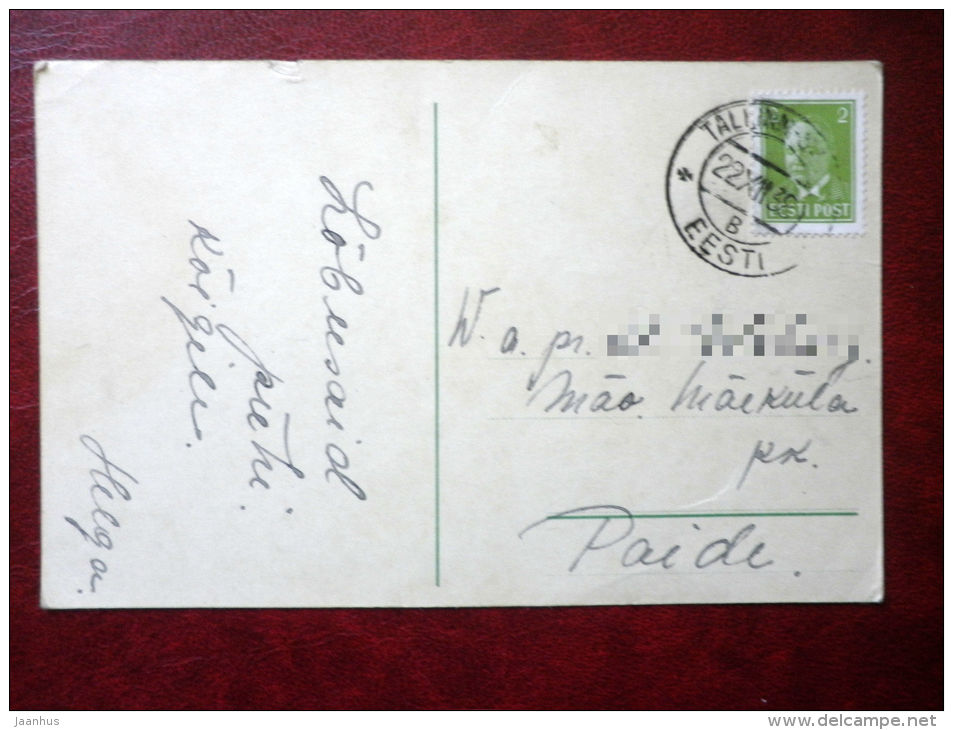 Lõbusaid
pühi
kõigile.
Helga.
2
EESTI POST
TALLINN
22 XII 36
B
EESTI
W. a. pr.
Mäo. Mäeküla
pk.
Paide.
Jaanhus
www.delcampe.net